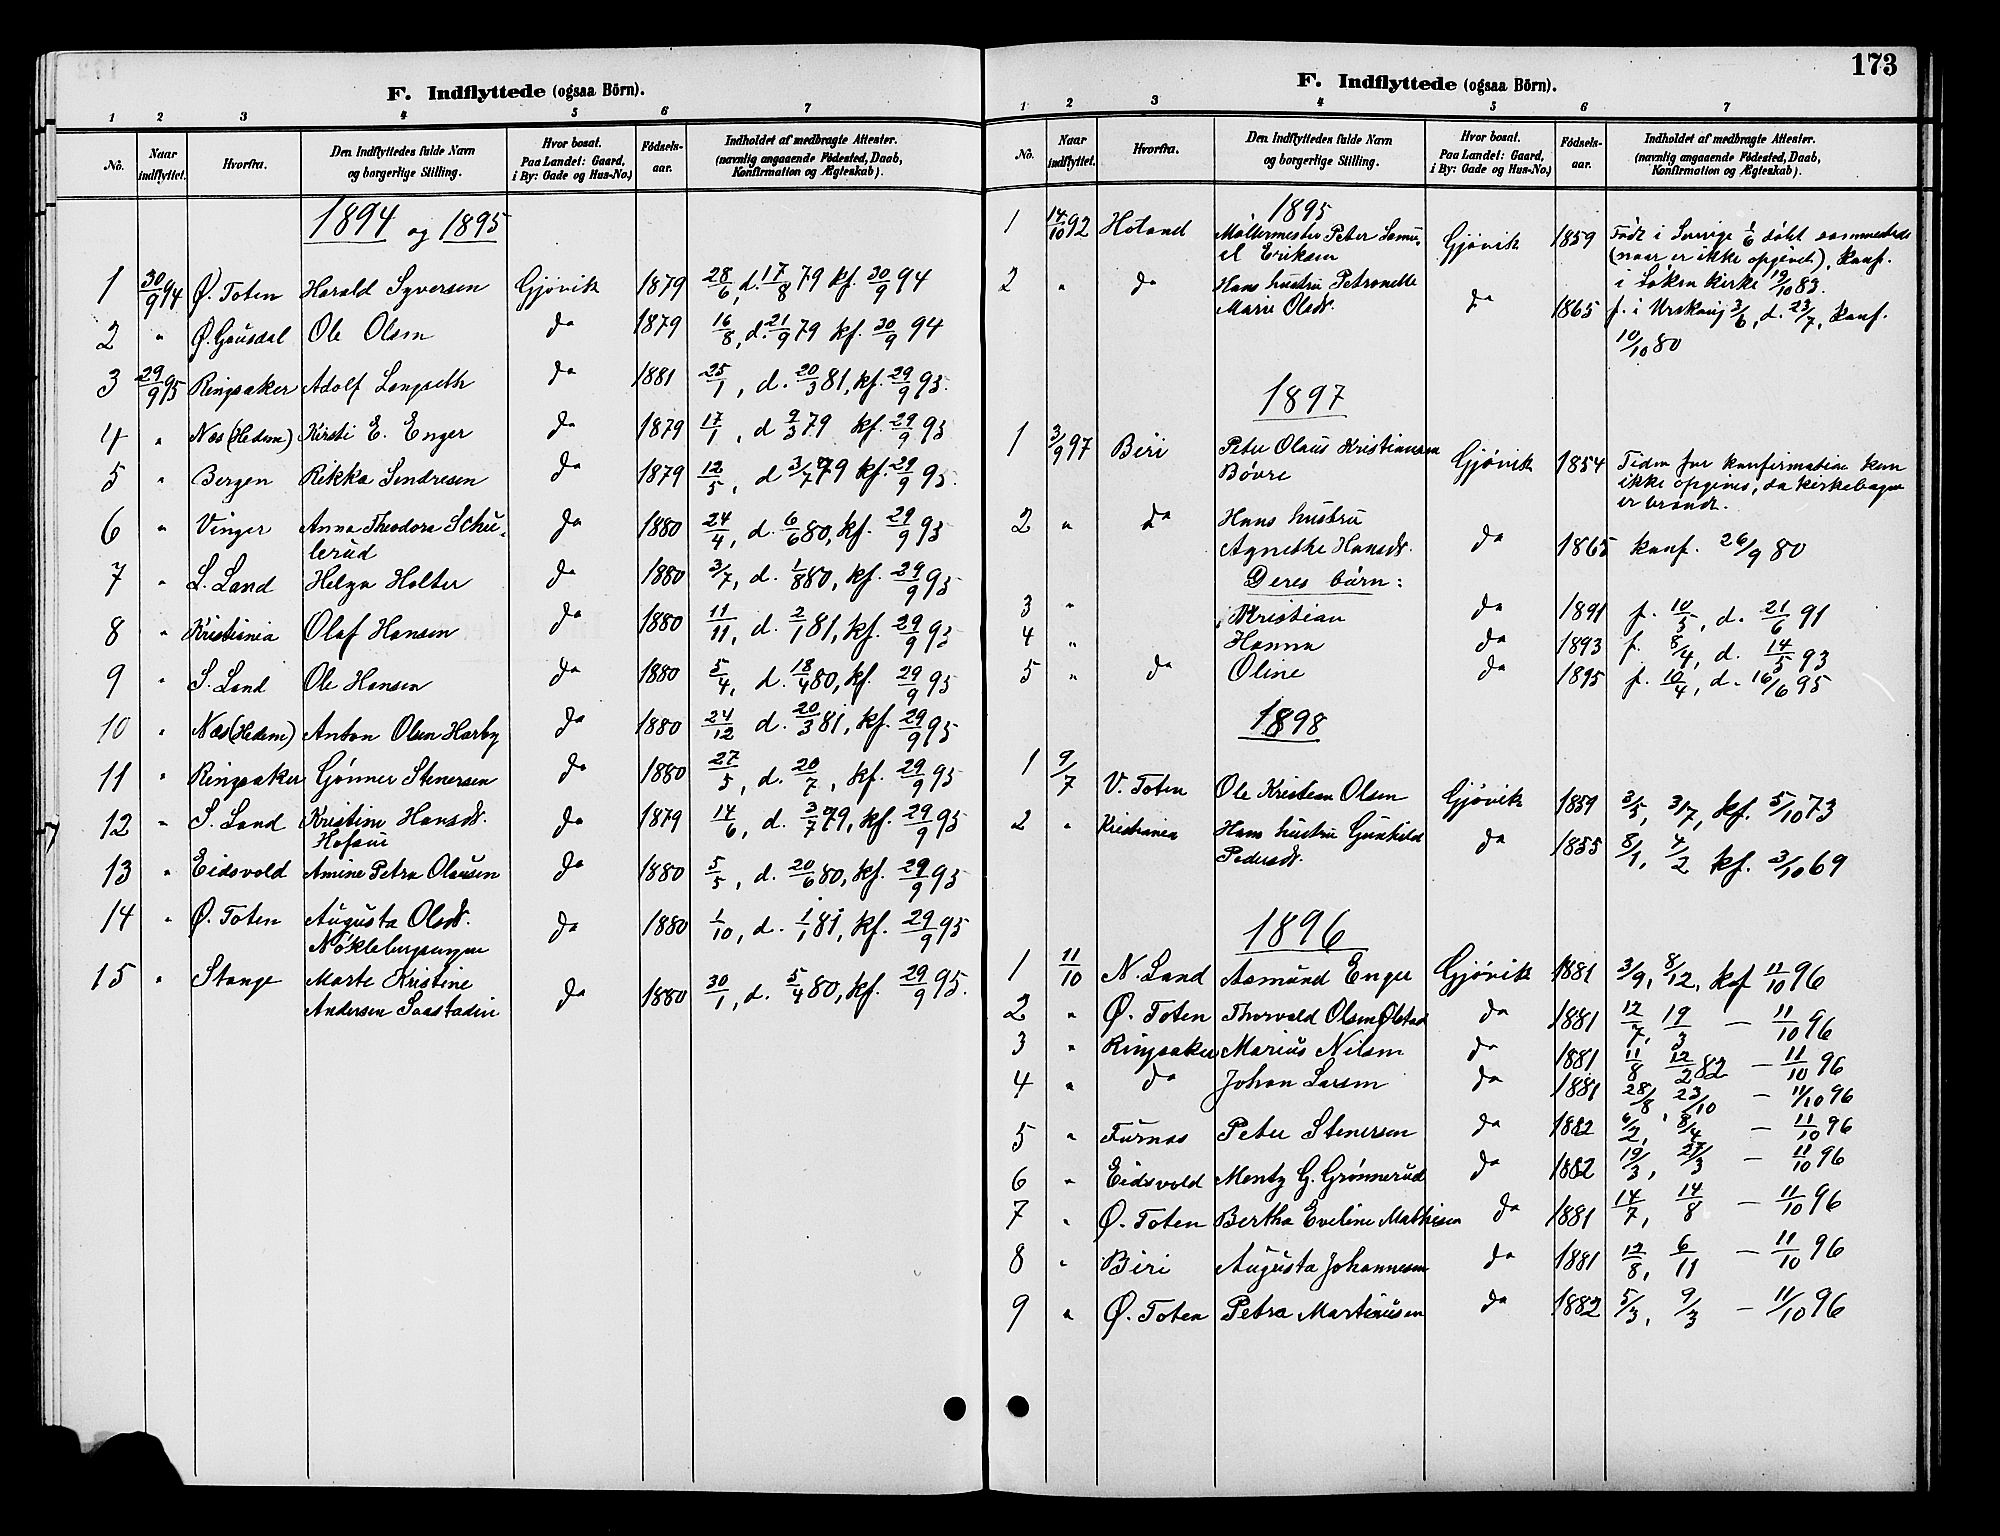 F. Indflyttede (ogsaa Börn).
1 2 3 4 5 6 7
No. Naar indflyttet. Hvorfra. Den Indflyttedes fulde Navn og borgerlige Stilling. Hvor bosat. Paa Landet: Gaard, i By: Gade og Hus-No.) Fødsels-aar. Indholdet af medbragte Attester. (navnlig angaaende Fødested, Daab, Konfirmation og Ægteskab).
1894 og 1895
1 30/9 94 Ø. Toten Harald Syversen Gjøvik 1879 28/6, d. 17/8 79 kf. 30/9 94
2 " Ø. Gausdal Ole Olsen do 1879 16/8, d. 21/9 79 kf. 30/9 94
3 29/9 95 Ringsaker Adolf Langseth do 1881 25/1, d. 20/3 81, kf. 29/9 95.
4 " Nes (Hedem) Kirsti E. Enger do 1879 17/1, d 9/3 79 kf. 29/9 95
5 " Bergen Rikka Sendresen do 1879 12/5, d 3/7 79 kf. 29/9 95.
6 " Vinger Anna Theodora Schu-
lerud do 1880 24/4, d. 6/6 80, kf. 29/9 95
7 " S. Land Helga Holter do 1880 3/7, d. 1/8 80, kf. 29/9 95
8 " Kristiania Olaf Hansen do 1880 11/11, d. 2/1 81, kf. 29/9 95
9 " S. Land Ole Hansen do 1880 5/4, d. 18/4 80, kf. 29/9 95
10 " Nes (Hedem) Anton Olsen Harby do 1880 24/12 d. 20/3 81, kf. 29/9 95
11 " Ringsaker Gunner Stenersen do 1880 27/5, d. 20/7, kf. 29/9 95
12 " S. Land Kristine Hansdt. do 1879 14/6, d. 3/7 79, kf. 29/9 95
13 " Eidsvold Amine Petra Olausen do 1880 5/5, d. 20/6 80, kf. 29/9 95
14 " Ø. Toten Augusta Olsdt. do 1880 1/10, d. 1/1 81, kf. 29/9 95
15 " Stange Marte Kristine
Andersen Saastadin do 1880 30/1, d. 5/4 80, kf. 29/9 95.
173
F. Indflyttede (ogsaa Börn).
1 2 3 4 5 6 7
No. Naar indflyttet. Hvorfra. Den Indflyttedes fulde Navn og borgerlige Stilling. Hvor bosat. Paa Landet: Gaard, i By: Gade og Hus-No.) Fødsels-aar. Indholdet af medbragte Attester. (navnlig angaaende Fødested, Daab, Konfirmation og Ægteskab).
1895
1 14/10 92 Høland Møllermester Peter Samu-
el Eriksen Gjøvik 1859 Født i Sverige 1/6 døbt sammesteds
(naar er ikke opgivet), konf.
i Søken kirke 19/10 83.
2 " do Hans hustru Petronelle
Marie Olsdt. do 1865 f. i Urskoug 3/6, d. 23/7, konf.
10/10 80
1897
1 3/9 97 Biri Peter Olaus Kristiansen
Bøvre Gjøvik 1854 Tiden for konfirmation kan
ikke opgives, da kirkebogen
er brændt.
2 " do Hans hustru
Agnethe Hansdt. do 1865 konf. 26/9 80
Deres børn:
3 " Kristian do 1891 f. 10/5, d. 21/6 91
4 " Hanna do 1893 f. 8/4, d. 14/5 93
5 " do Oline do 1895 f. 10/4, d. 16/6 95
1898
1 9/7 V. Toten Ole Kristian Olsen Gjøvik 1859 3/5, 3/7, kf. 5/10 73
2 " Kristiania Hans hustru Gunhild
Pedersdt. do 1855 8/1, 4/2 kf. 3/10 69
1896
1 11/10 N. Land Asmund Enger Gjøvik 1881 3/9, 8/12, kf 11/10 96
2 " Ø. Toten Thorvald Olsen Ølstad do 1881 12/7, 19/3 — 11/10 96
3 " Ringsaker Marius Nilsen do 1881 11/8 12/2 82 — 11/10 96
4 " do Johan Larsen do 1881 28/8, 23/10 — 11/10 96
5 " Furnes Peter Stenersen do 1882 6/2, 8/4 — 11/10 96
6 " Eidsvold Mentz G. Grønnerud do 1882 19/3, 27/3 — 11/10 96
7 " Ø. Toten Bertha Eveline Mathisen do 1881 14/7, 14/8 — 11/10 96
8 " Biri Augusta Johannesen do 1881 12/8, 6/11 — 11/10 96
9 " Ø. Toten Petra Martinusen do 1882 5/3, 9/3 — 11/10 96